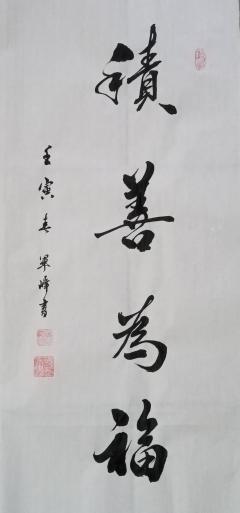 積善為福
壬寅春 梁峰書